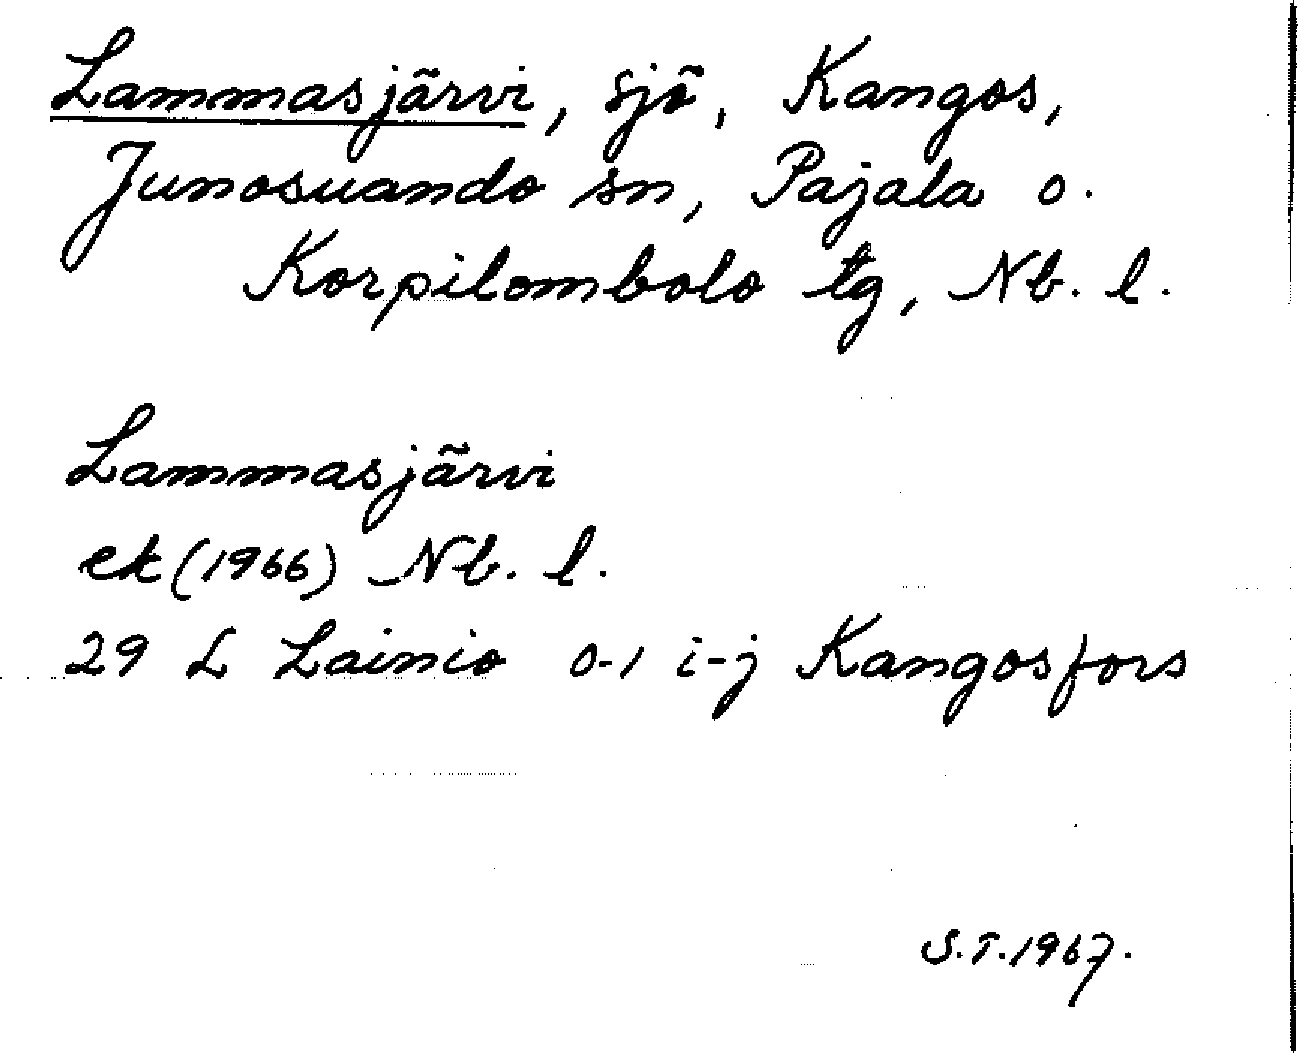 Lammasjärvi, sjö, Kangos,
Junosuando sn, Pajala o.
Korpilombolo tg, Nb. l.
Lammasjärvi
ek (1966) Nb. l.
29 L Lainio 0-1 i-j Kangosfors
S.T. 1967.